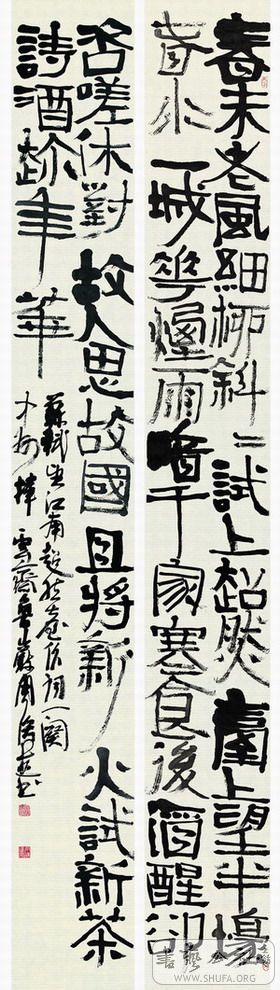 春未老風細柳斜=試上超然臺上望半壕
春水一城花煙雨暗千家寒食後酒醒卻
咨嗟休對故人思故國且將新火試新茶
詩酒趂年華
蘇軾望江南超然臺作詞一闋
書
WWW.SHUFA.ORG